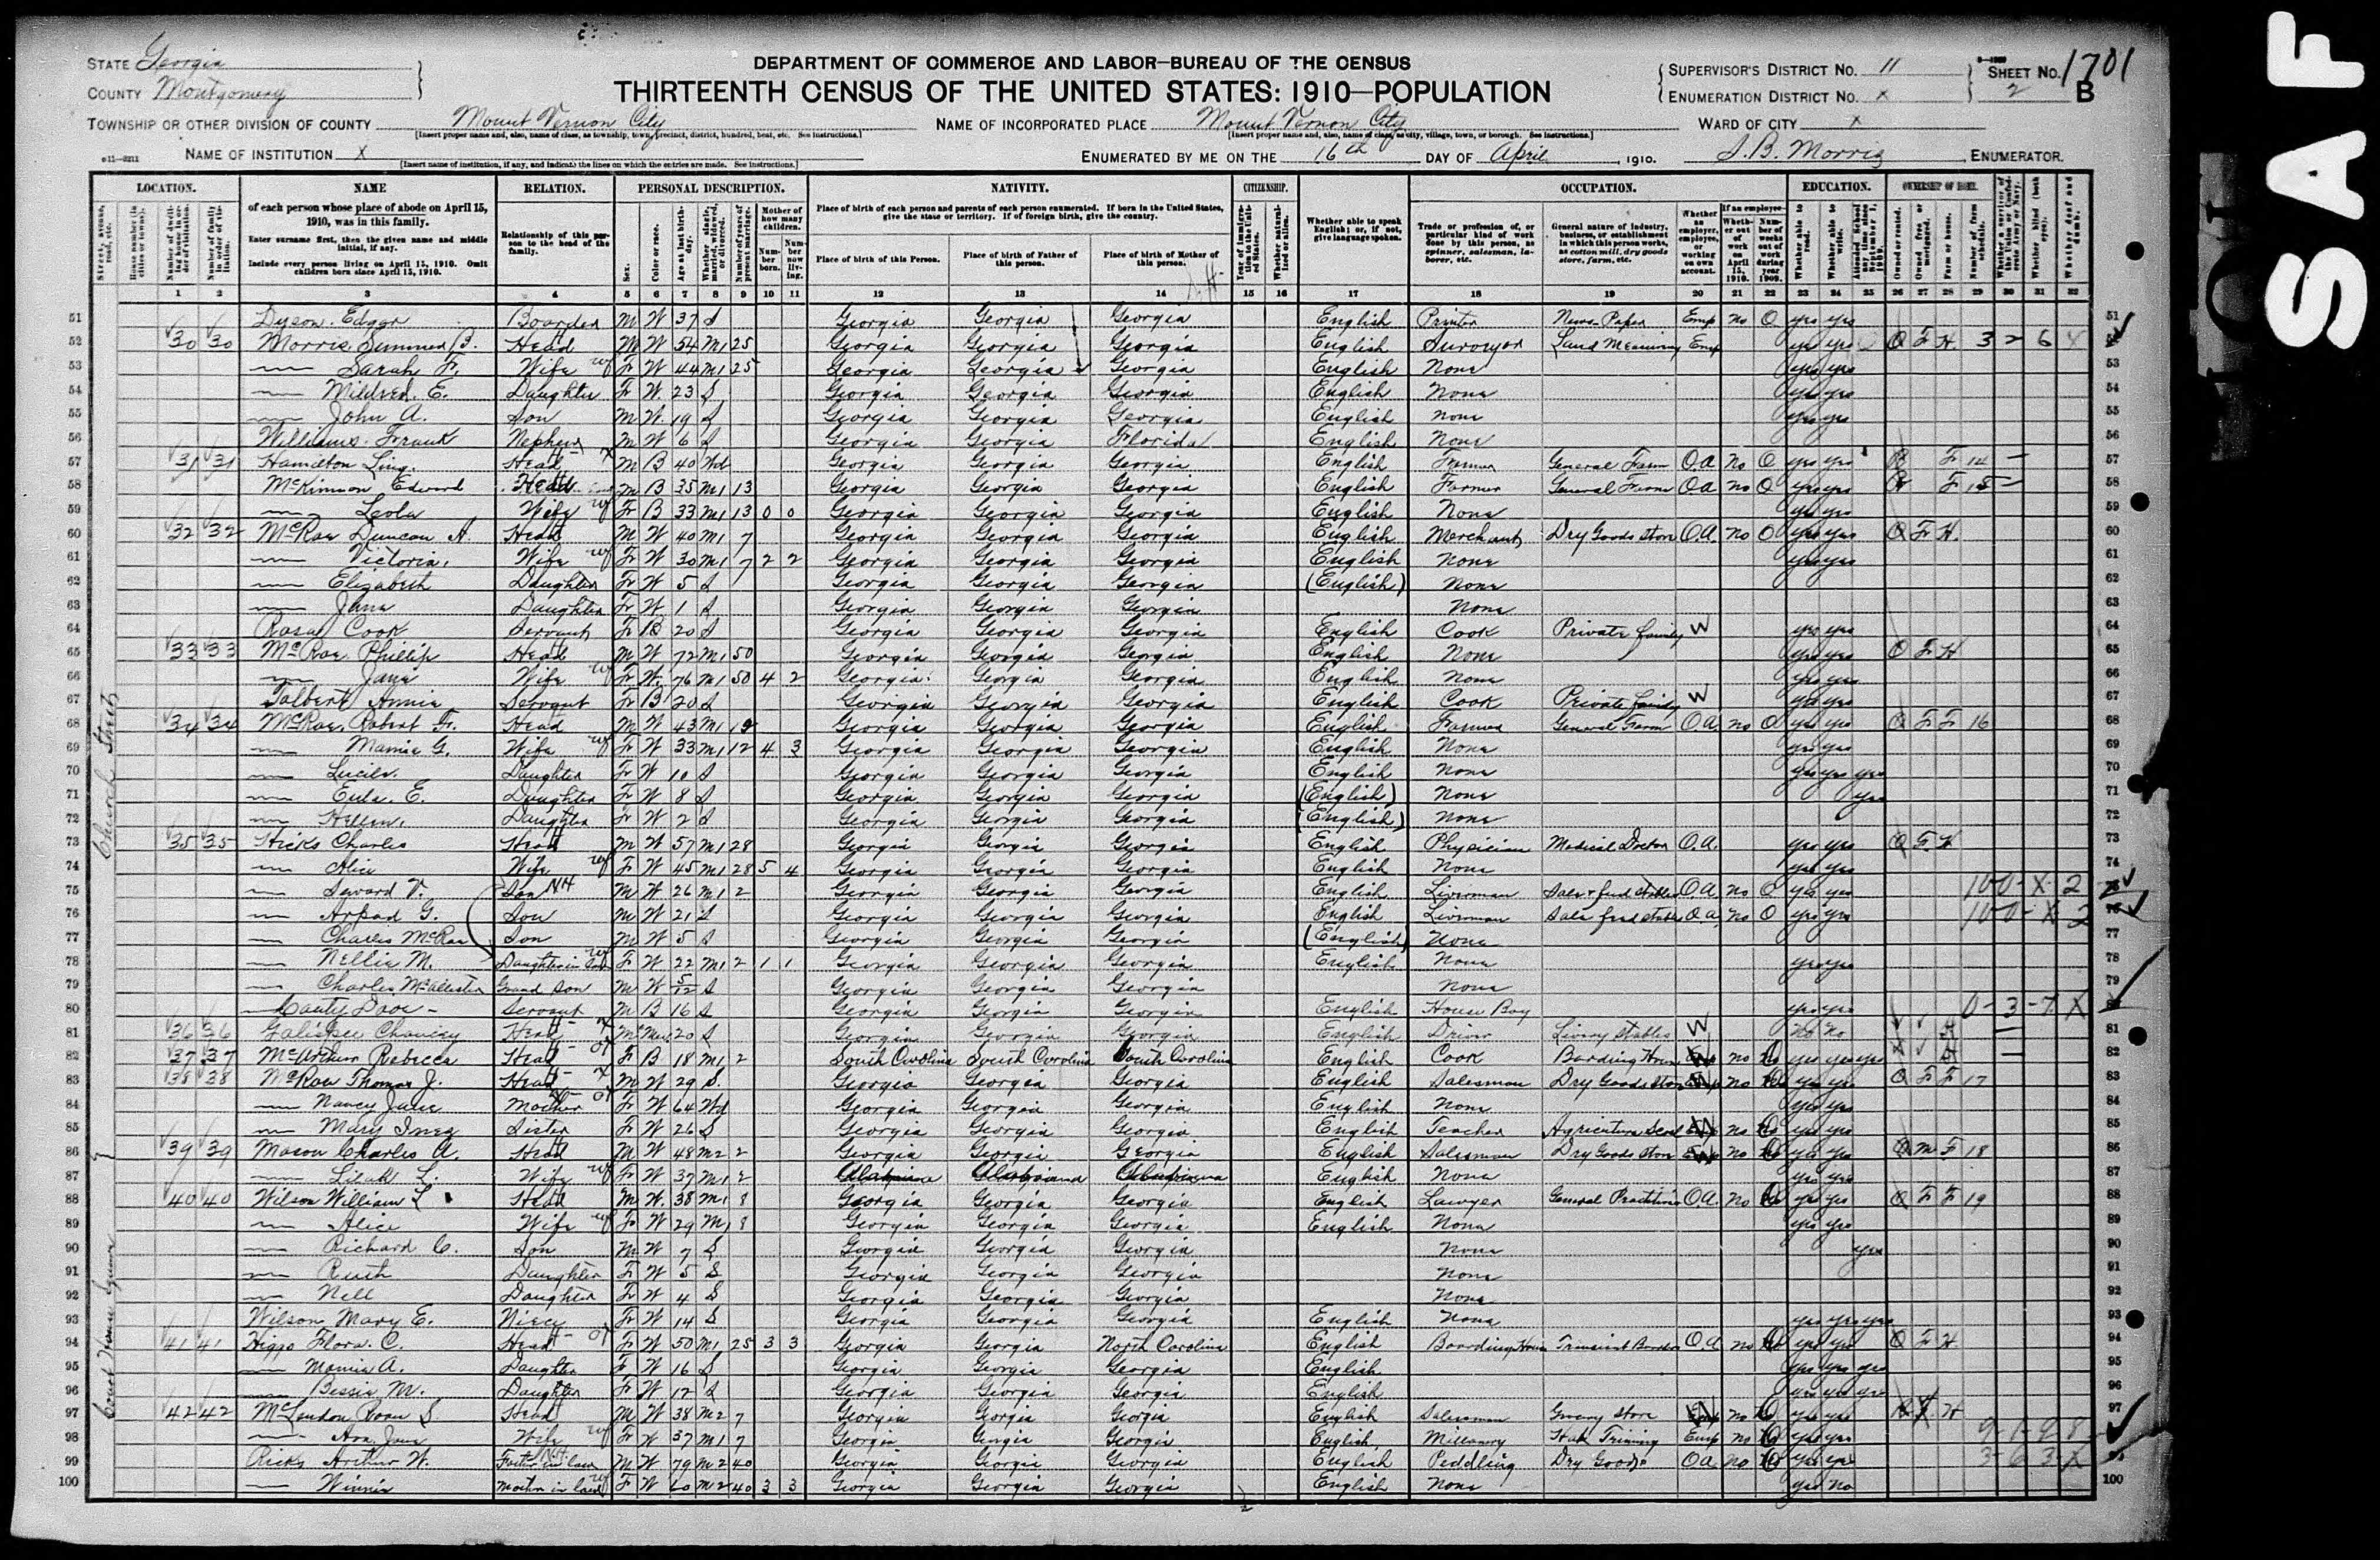 1701
STATE Georgia
COUNTY Montgomery
DEPARTMENT OF COMMERCE AND LABOR—BUREAU OF THE CENSUS
THIRTEENTH CENSUS OF THE UNITED STATES: 1910—POPULATION
SUPERVISOR'S DISTRICT No. 11
ENUMERATION DISTRICT No. x
SHEET No. 2 B
TOWNSHIP OR OTHER DIVISION OF COUNTY Mount Vernon City
NAME OF INCORPORATED PLACE Mount Vernon City
WARD OF CITY x
NAME OF INSTITUTION X
ENUMERATED BY ME ON THE 16th DAY OF April, 1910. S. B. Morris, ENUMERATOR.
LOCATION. NAME RELATION. PERSONAL DESCRIPTION. NATIVITY. CITIZENSHIP. OCCUPATION. EDUCATION. OWNERSHIP OF HOME.
of each person whose place of abode on April 15, 1910, was in this family.
Enter surname first, then the given name and middle initial, if any.
Include every person living on April 15, 1910. Omit children born since April 15, 1910.
Relationship of this person to the head of the family.
Place of birth of each person and parents of each person enumerated. If born in the United States, give the state or territory. If of foreign birth, give the country.
Place of birth of this Person. Place of birth of Father of this person. Place of birth of Mother of this person.
Whether able to speak English; or, if not, give language spoken.
1 2 3 4 5 6 7 8 9 10 11 12 13 14 15 16 17 18 19 20 21 22 23 24 25 26 27 28 29 30 31 32
51 Dyson Edgar Boarder M W 37 S Georgia Georgia Georgia English Printer News Paper Emp no 0 yes yes 51
52 30 30 Morris Head M W 54 M1 25 Georgia Georgia Georgia English Surveyor Land Measuring Emp yes yes O F H
53 Sarah F. Wife F W 44 M1 25 Georgia Georgia Georgia English None yes yes 53
54 Mildred E. Daughter F W 23 S Georgia Georgia Georgia English None yes yes 54
55 John A. Son M W 19 S Georgia Georgia Georgia English None yes yes 55
56 Williams Frank Nephew M W 6 S Georgia Georgia Florida English None 56
57 31 31 Hamilton Head M B 40 Wd Georgia Georgia Georgia English Farmer General Farm OA No 0 yes yes F 14 57
58 McKinnon Edward Head M B 35 M1 13 Georgia Georgia Georgia English Farmer General Farm OA no 0 yes yes F 15 58
59 Leola Wife F B 33 M1 13 0 0 Georgia Georgia Georgia English None yes yes 59
60 32 32 McRae Duncan A Head M W 40 M1 7 Georgia Georgia Georgia English Merchant Dry Goods Store O.A. no 0 yes yes O F H. 60
61 Victoria Wife F W 30 M1 7 2 2 Georgia Georgia Georgia English None yes yes 61
62 Elizabeth Daughter F W 5 S Georgia Georgia Georgia (English) None 62
63 Jane Daughter F W 1 S Georgia Georgia Georgia None 63
64 Rosa Cook Servant F B 20 S Georgia Georgia Georgia English Cook Private family W yes yes 64
65 33 33 McRae Phillip Head M W 72 M1 50 Georgia Georgia Georgia English None yes yes O F H 65
66 Jane Wife F W 76 M1 50 4 2 Georgia Georgia Georgia English None yes yes 66
67 Talbert Annie Servant F B 20 S Georgia Georgia Georgia English Cook Private family W yes yes 67
68 34 34 McRae Robert F. Head M W 43 M1 12 Georgia Georgia Georgia English Farmer General Farm OA no 0 yes yes O F F 16 68
69 Mamie G. Wife F W 33 M1 12 4 3 Georgia Georgia Georgia English None yes yes 69
70 Lucile Daughter F W 10 S Georgia Georgia Georgia English None yes yes yes 70
71 Eula E. Daughter F W 8 S Georgia Georgia Georgia (English) None yes 71
72 Hellen Daughter F W 2 S Georgia Georgia Georgia (English) None 72
73 35 35 Hicks Charles Head M W 57 M1 28 Georgia Georgia Georgia English Physician Medical Doctor O.A. yes yes O F H 73
74 Alice Wife F W 45 M1 28 5 4 Georgia Georgia Georgia English None yes yes 74
75 Seward V. Son M W 26 M1 2 Georgia Georgia Georgia English Liveryman Sale & feed stables OA no 0 yes yes 100-X-2
76 Arpad G. Son M W 21 S Georgia Georgia Georgia English Liveryman Sale feed stable OA No 0 yes yes 100-X-2
77 Charles McRae Son M W 5 S Georgia Georgia Georgia (English) None 77
78 Nellie M. Daughter in law F W 22 M1 2 1 1 Georgia Georgia Georgia English None yes yes 78
79 Charles McAllister Grand son M W 5/12 S Georgia Georgia Georgia None 79
80 Servant M B 16 S Georgia Georgia Georgia English House Boy yes yes 0-3-7 X
81 36 36 Chancey Head M Mu 20 S Georgia Georgia Georgia English Driver Livery Stables W no no 81
82 37 37 McArthur Rebecca Head F B 18 M1 2 South Carolina South Carolina South Carolina English Cook Boarding House W no yes yes yes 82
83 38 38 McRae Thomas J. Head M W 29 S Georgia Georgia Georgia English Salesman Dry Goods Store W no yes yes O F F 17 83
84 Nancy Jane Mother F W 64 Wd Georgia Georgia Georgia English None yes yes 84
85 Mary Inez Sister F W 26 S Georgia Georgia Georgia English Teacher W no yes yes 85
86 39 39 Mason Charles A. Head M W 48 M2 2 Georgia Georgia Georgia English Salesman Dry Goods Store W no yes yes O M F 18 86
87 Lilah L. Wife F W 37 M1 2 Alabama Alabama Alabama English None yes yes 87
88 40 40 Wilson William L Head M W 38 M1 8 Georgia Georgia Georgia English Lawyer General Practice O.A. No yes yes O F F 19 88
89 Alice Wife F W 29 M1 8 Georgia Georgia Georgia English None yes yes 89
90 Richard C. Son M W 7 S Georgia Georgia Georgia None yes 90
91 Ruth Daughter F W 5 S Georgia Georgia Georgia None 91
92 Nell Daughter F W 4 S Georgia Georgia Georgia None 92
93 Wilson Mary E. Niece F W 14 S Georgia Georgia Georgia English None yes yes yes 93
94 41 41 Higgs Flora C. Head F W 50 M1 25 3 3 Georgia Georgia North Carolina English Boarding House Transient Boarders OA no yes yes O F H 94
95 Mamie A. Daughter F W 16 S Georgia Georgia Georgia English yes yes yes 95
96 Bessie M. Daughter F W 12 S Georgia Georgia Georgia English yes yes yes 96
97 42 42 McLendon Head M W 38 M2 7 Georgia Georgia Georgia English Salesman Grocery Store W no yes yes H 97
98 Jane Wife F W 37 M1 7 Georgia Georgia Georgia English Millinery Hat Triming Emp no yes yes 9-1-9-8
99 Ricks Arthur W. Father in law M W 79 M2 40 Georgia Georgia Georgia English Peddling Dry Goods OA no yes yes 3-6-3-X
100 Winnie Mother in law F W 60 M2 40 3 3 Georgia Georgia Georgia English None yes no 100
Church Street
Court House Square
SAF